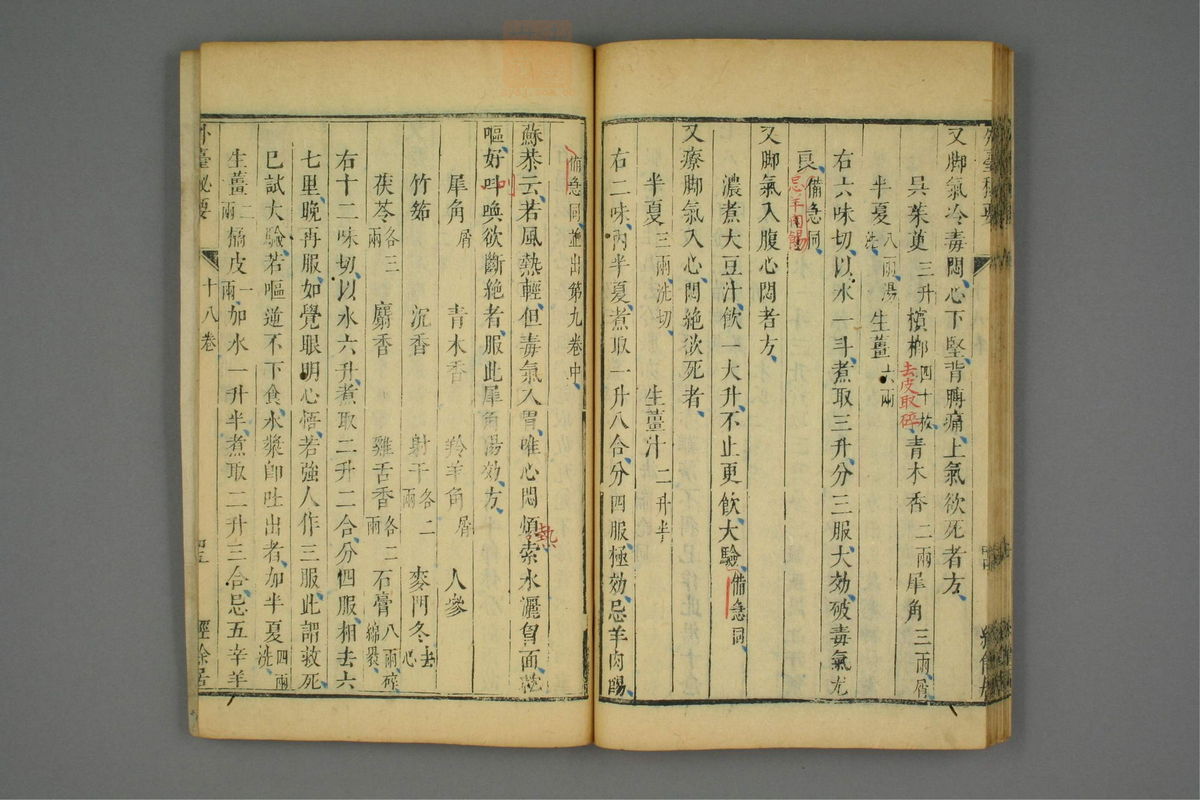 又脚氣冷毒悶心下堅背膊痛上氣欲死者方
吳茱萸三升檳榔四十枚青木香二兩犀角三兩屑
去皮取碎
半夏八兩湯洗生薑六兩
右六味切以水一斗煮取三升分三服大効破毒氣尤
良備急同
忌羊肉餳
又脚氣入腹心悶者方
濃煮大豆汁飲一大升不止更飲大驗備急同
又療脚氣入心悶絶欲死者
半夏三兩洗切生薑汁二升半
右二味內半夏煮取一升八合分四服極効忌羊肉餳
備急同並出第九卷中
蘇恭云若風熱輕但毒氣入胃唯心悶煩索水灑胷面
熱
嘔好呌喚欲斷絶者服此犀角湯効方
犀角屑青木香羚羊角屑人參
竹茹沉香射干各二兩麥門冬去心
茯苓各三兩麝香雞舌香各二兩石膏八兩碎綿裹
右十二味切以水六升煮取二升二合分四服相去六
七里晚再服如覺眼明心悟若強人作三服此謂救死
已試大驗若嘔逆不下食水漿卽吐出者加半夏四兩洗
生薑二兩橘皮一兩加水一升半煮取二升三合忌五辛羊
外臺祕要
十八卷
經餘居